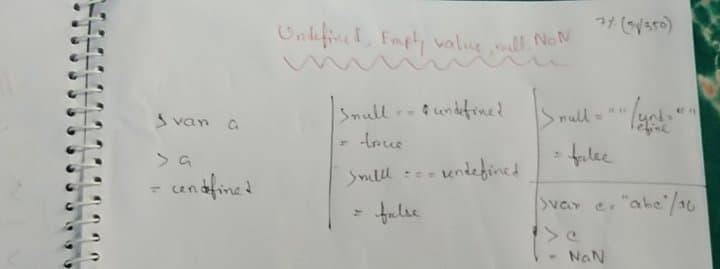 7% (5/350)
Undefined, Empty value, null, NaN
> var a
> a
= undefined
> null == undefined
= true
> null === undefined
= false
> null = "" / undefine = ""
= false
> var c = "abc"/16
> c
= NaN